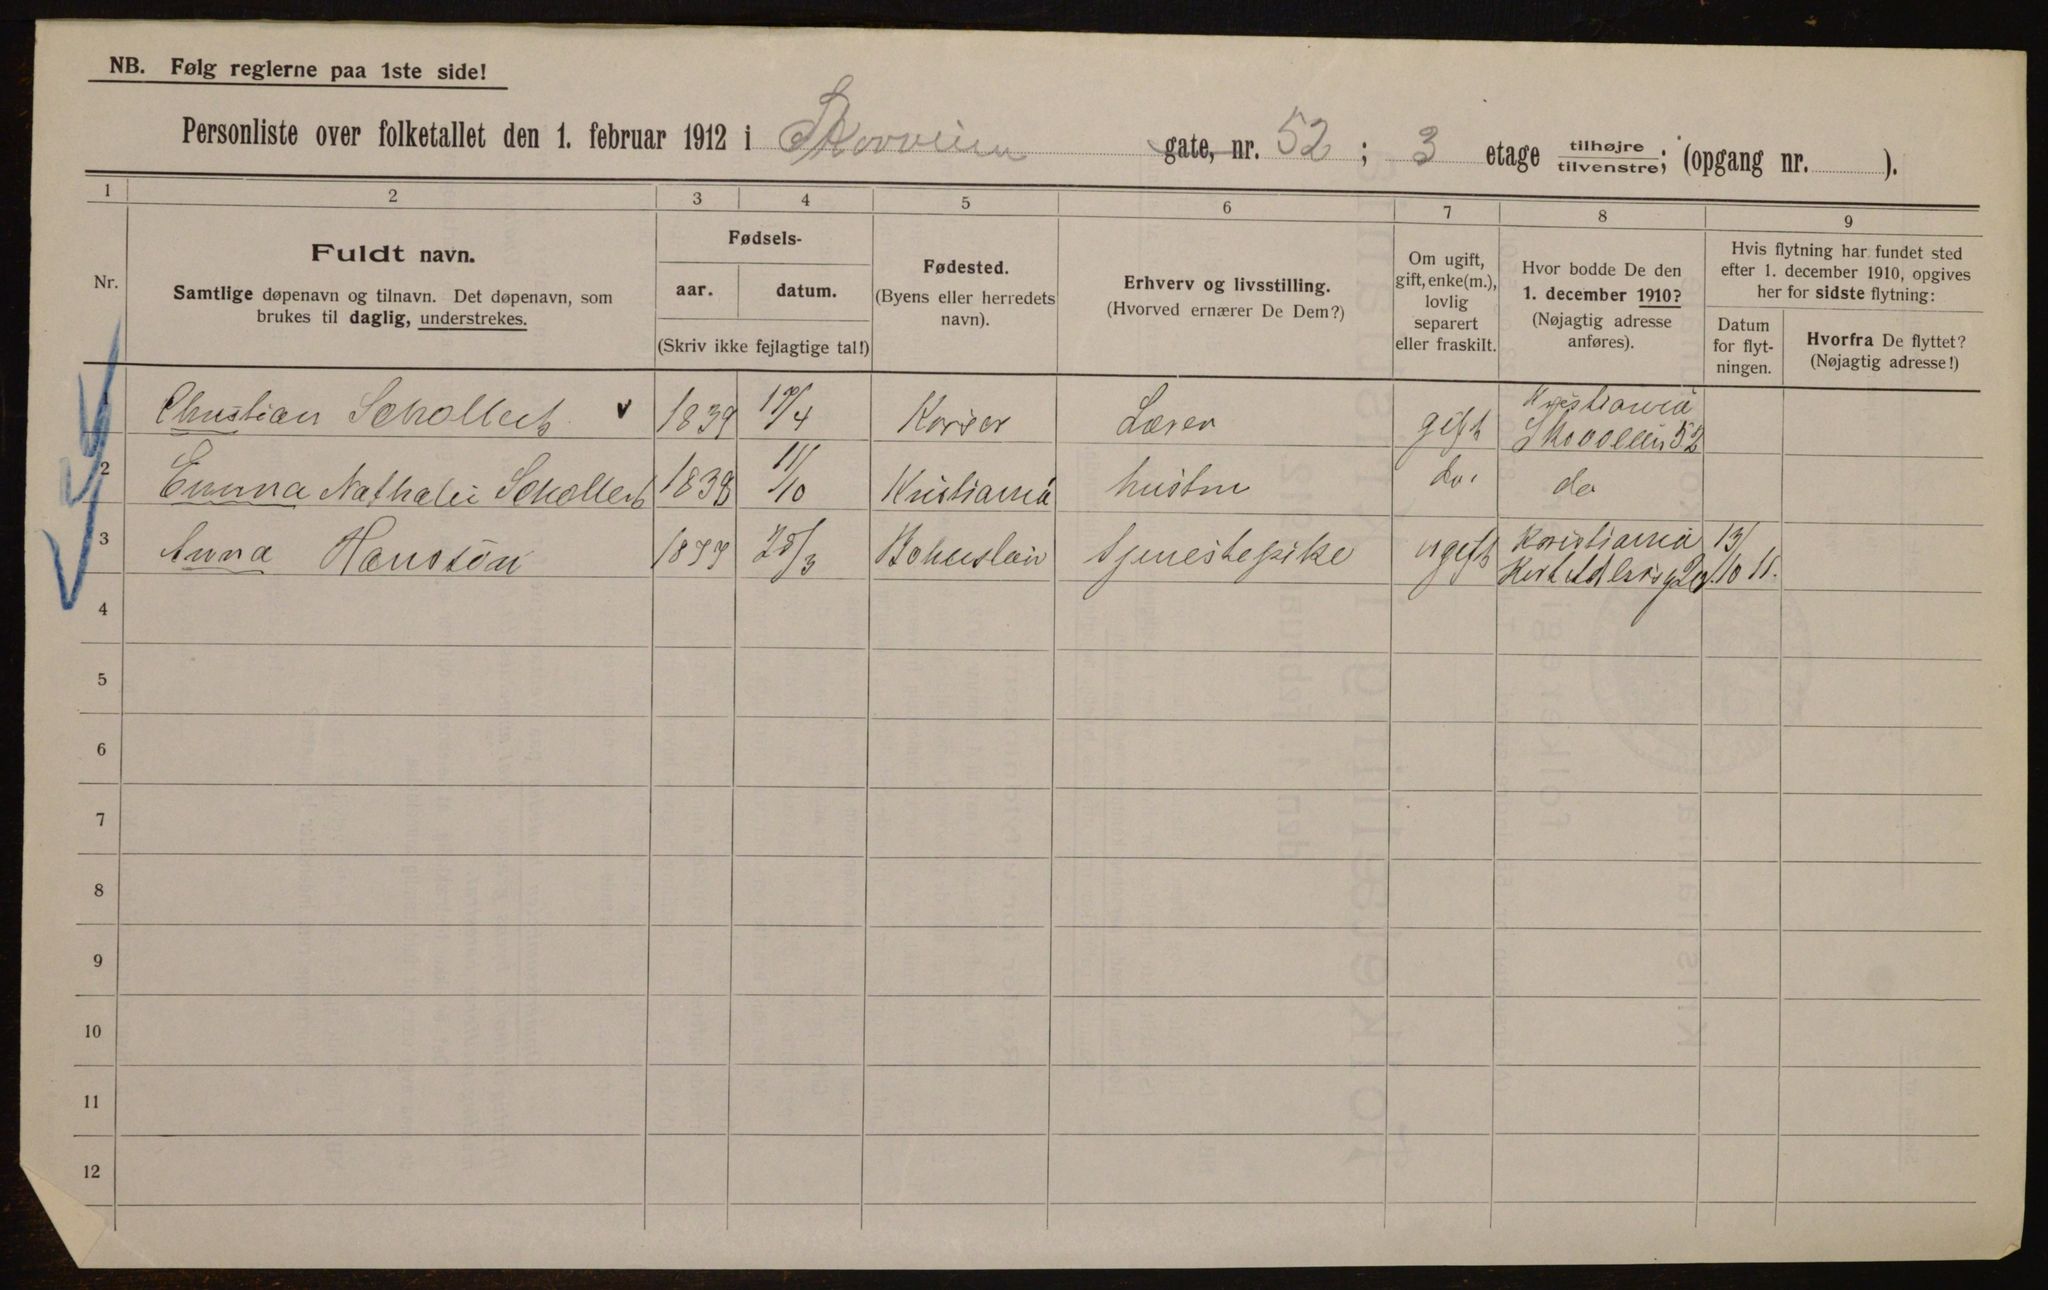 NB. Følg reglerne paa 1ste side!
Personliste over folketallet den 1. februar 1912 i Skovveien gate, nr. 52; 3 etage tilhøjre/tilvenstre; (opgang nr. ).
1 2 3 4 5 6 7 8 9
Nr.
Fuldt navn.
Samtlige døpenavn og tilnavn. Det døpenavn, som
brukes til daglig, understrekes.
Fødsels-
aar. datum.
(Skriv ikke fejlagtige tal!)
Fødested.
(Byens eller herredets
navn).
Erhverv og livsstilling.
(Hvorved ernærer De Dem?)
Om ugift,
gift, enke(m.),
lovlig
separert
eller fraskilt.
Hvor bodde De den
1. december 1910?
(Nøjagtig adresse
anføres).
Hvis flytning har fundet sted
efter 1. december 1910, opgives
her for sidste flytning:
Datum
for flyt-
ningen.
Hvorfra De flyttet?
(Nøjagtig adresse!)
1 Christian Schollert 1839 /4 Korsør Lærer gift Kristiania
Skovveien 52
2 Emma Nathalie Schollert 1838 11/10 Kristiania hustru do. do
3 Anna Hansson 1877 25/3 Bohuslän tjenestepike ugift Kristiania 13/
10 11.
4
5
6
7
8
9
10
11
12